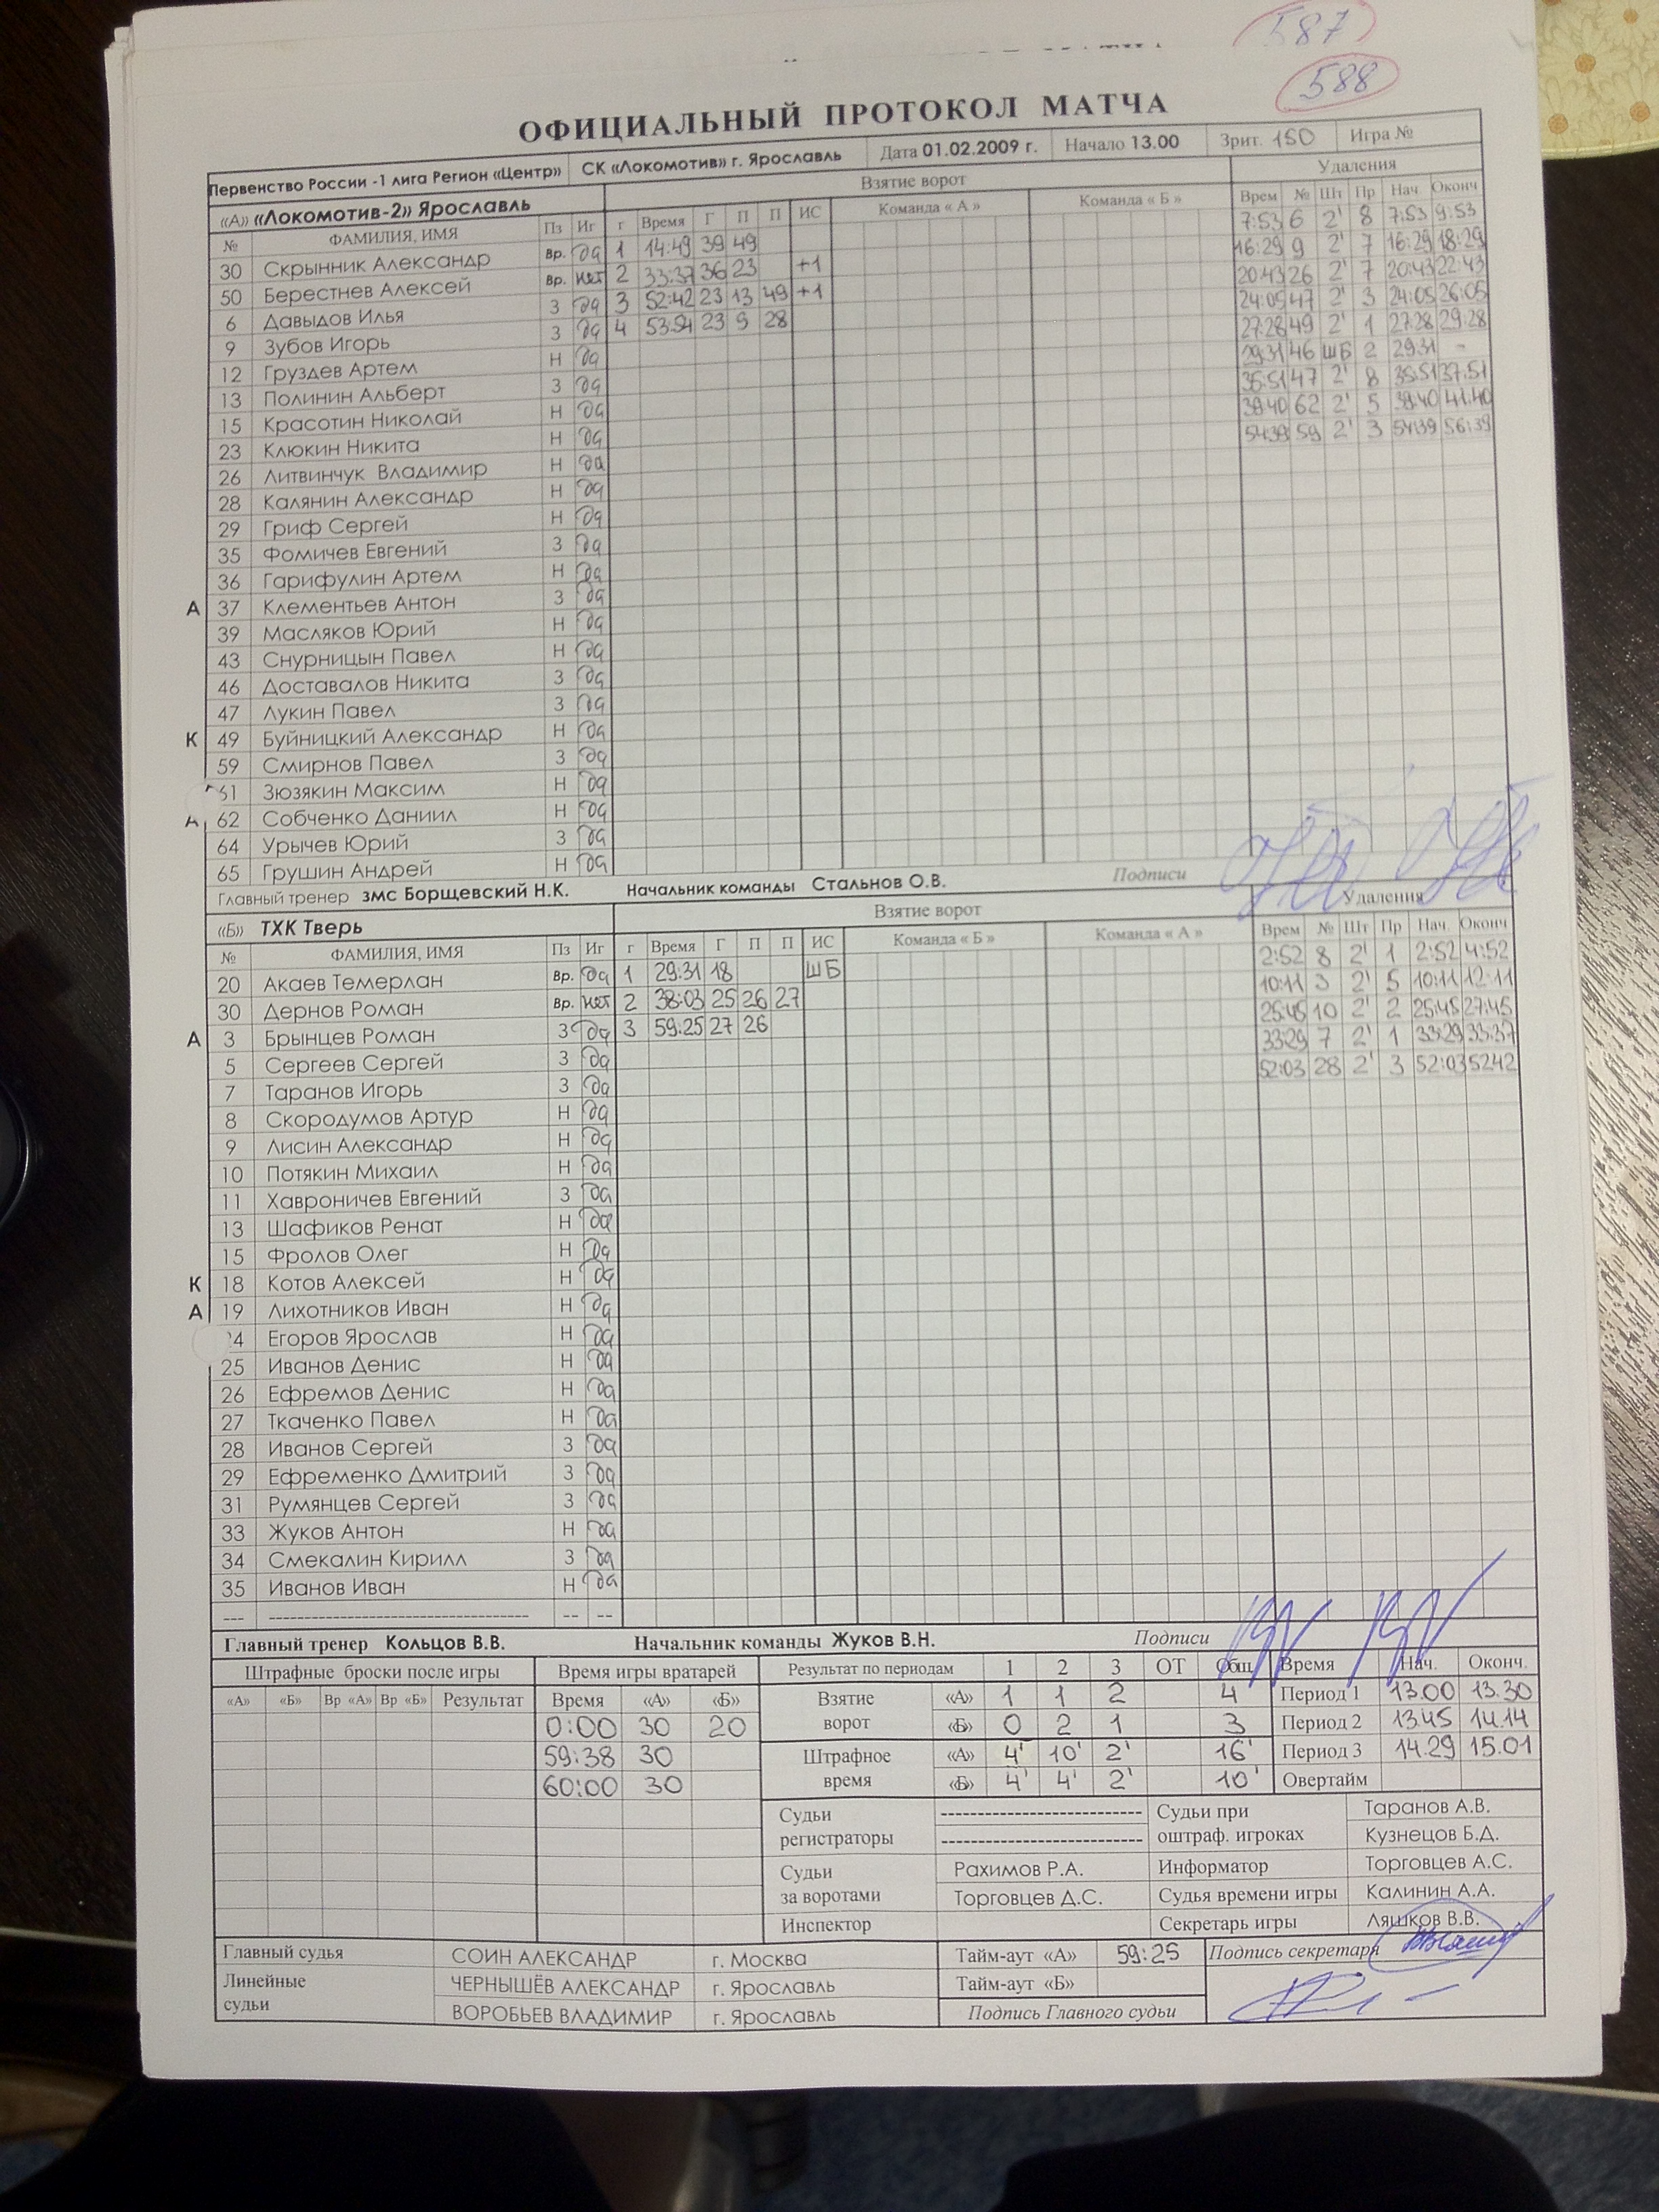 587
588
ОФИЦИАЛЬНЫЙ ПРОТОКОЛ МАТЧА
Первенство России -1 лига Регион «Центр» СК «Локомотив» г. Ярославль Дата 01.02.2009 г. Начало 13.00 Зрит. 150 Игра №
«А» «Локомотив-2» Ярославль Взятие ворот Удаления
№ ФАМИЛИЯ, ИМЯ Пз Иг г Время Г П П ИС Команда « А » Команда « Б » Врем № Шт Пр Нач. Оконч
30 Скрынник Александр Вр. да 1 14:49 39 49 7:53 6 2' 8 7:53 9:53
50 Берестнев Алексей Вр. нет 2 33:37 36 23 +1 16:29 9 2' 7 16:29 18:29
6 Давыдов Илья З да 3 52:42 23 13 49 +1 20:43 26 2' 7 20:43 22:43
9 Зубов Игорь З да 4 53:54 23 9 28 24:05 47 2' 3 24:05 26:05
12 Груздев Артем Н да 27:28 49 2' 1 27:28 29:28
13 Полинин Альберт З да 29:31 46 ШБ 2 29:31 -
15 Красотин Николай Н да 35:51 47 2' 8 35:51 37:51
23 Клюкин Никита Н да 39:40 62 2' 5 39:40 41:40
26 Литвинчук Владимир Н да 54:39 59 2' 3 54:39 56:39
28 Калянин Александр Н да
29 Гриф Сергей Н да
35 Фомичев Евгений З да
36 Гарифулин Артем Н да
А 37 Клементьев Антон З да
39 Масляков Юрий Н да
43 Снурницын Павел Н да
46 Доставалов Никита З да
47 Лукин Павел З да
К 49 Буйницкий Александр Н да
59 Смирнов Павел З да
61 Зюзякин Максим Н да
А 62 Собченко Даниил Н да
64 Урычев Юрий З да
65 Грушин Андрей Н да
Главный тренер змс Борщевский Н.К. Начальник команды Стальнов О.В. Подписи
«Б» ТХК Тверь Взятие ворот Удаления
№ ФАМИЛИЯ, ИМЯ Пз Иг г Время Г П П ИС Команда « Б » Команда « А » Врем № Шт Пр Нач. Оконч
20 Акаев Темерлан Вр. да 1 29:31 18 ШБ 2:52 8 2' 1 2:52 4:52
30 Дернов Роман Вр. нет 2 38:03 25 26 27 10:11 3 2' 5 10:11 12:11
А 3 Брынцев Роман З да 3 59:25 27 26 25:45 10 2' 2 25:45 27:45
5 Сергеев Сергей З да 33:29 7 2' 1 33:29 33:37
7 Таранов Игорь З да 52:03 28 2' 3 52:03 52:42
8 Скородумов Артур Н да
9 Лисин Александр Н да
10 Потякин Михаил Н да
11 Хавроничев Евгений З да
13 Шафиков Ренат Н да
15 Фролов Олег Н да
К 18 Котов Алексей Н да
А 19 Лихотников Иван Н да
4 Егоров Ярослав Н да
25 Иванов Денис Н да
26 Ефремов Денис Н да
27 Ткаченко Павел Н да
28 Иванов Сергей З да
29 Ефременко Дмитрий З да
31 Румянцев Сергей З да
33 Жуков Антон Н да
34 Смекалин Кирилл З да
35 Иванов Иван Н да
--- ------------------------------------ -- --
Главный тренер Кольцов В.В. Начальник команды Жуков В.Н. Подписи
Штрафные броски после игры Время игры вратарей Результат по периодам 1 2 3 ОТ Общ Время Нач. Оконч.
«А» «Б» Вр «А» Вр «Б» Результат Время «А» «Б» Взятие ворот «А» 1 1 2 4 Период 1 13.00 13.30
0:00 30 20 «Б» 0 2 1 3 Период 2 13.45 14.14
59:38 30 Штрафное время «А» 4' 10' 2' 16' Период 3 14.29 15.01
60:00 30 «Б» 4' 4' 2' 10' Овертайм
Судьи регистраторы ---------------------------- Судьи при оштраф. игроках Таранов А.В.
---------------------------- Кузнецов Б.Д.
Судьи за воротами Рахимов Р.А. Информатор Торговцев А.С.
Торговцев Д.С. Судья времени игры Калинин А.А.
Инспектор Секретарь игры Ляшков В.В.
Главный судья СОИН АЛЕКСАНДР г. Москва Тайм-аут «А» 59:25 Подпись секретаря
Линейные судьи ЧЕРНЫШЁВ АЛЕКСАНДР г. Ярославль Тайм-аут «Б»
ВОРОБЬЕВ ВЛАДИМИР г. Ярославль Подпись Главного судьи